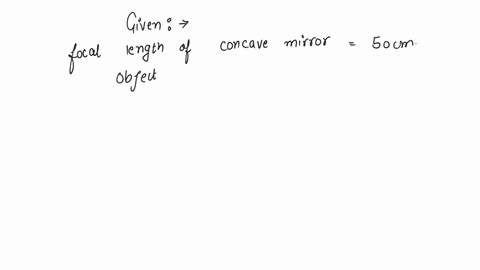 Given: →
focal length of concave mirror = 50cm.
Object